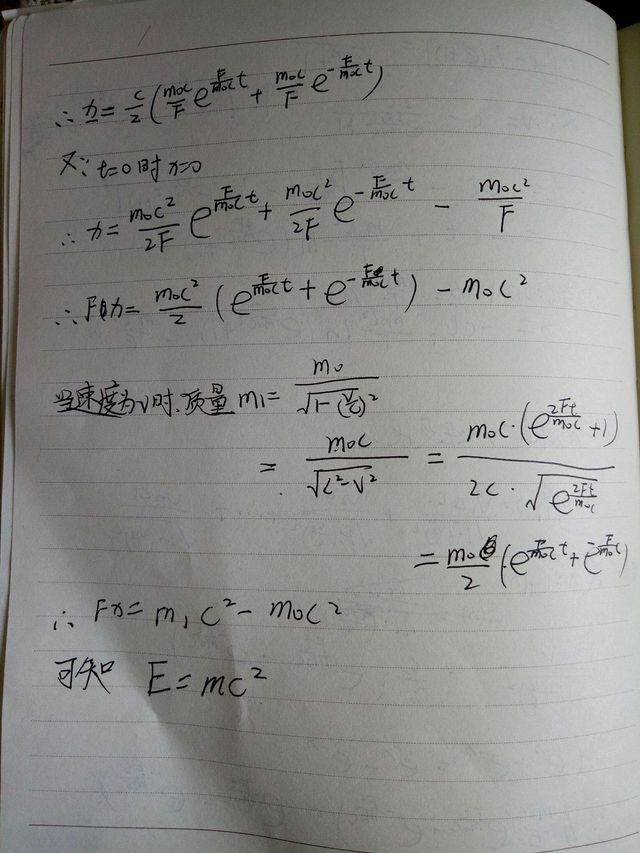 ∴ x = c/2 (m₀c/F e^(F/m₀c t) + m₀c/F e^(-F/m₀c t))
又∵ t=0时 x=0
∴ x = m₀c²/2F e^(F/m₀c t) + m₀c²/2F e^(-F/m₀c t) - m₀c²/F
∴ Fx = m₀c²/2 (e^(F/m₀c t) + e^(-F/m₀c t)) - m₀c²
当速度为v时,质量 m₁ = m₀/√(1-(v/c)²)
= m₀c/√(c²-v²) = m₀c·(e^(2Ft/m₀c) + 1)/(2c·√(e^(2Ft/m₀c)))
= m₀/2 (e^(F/m₀c t) + e^(-F/m₀c t))
∴ Fx = m₁c² - m₀c²
可知 E = mc²